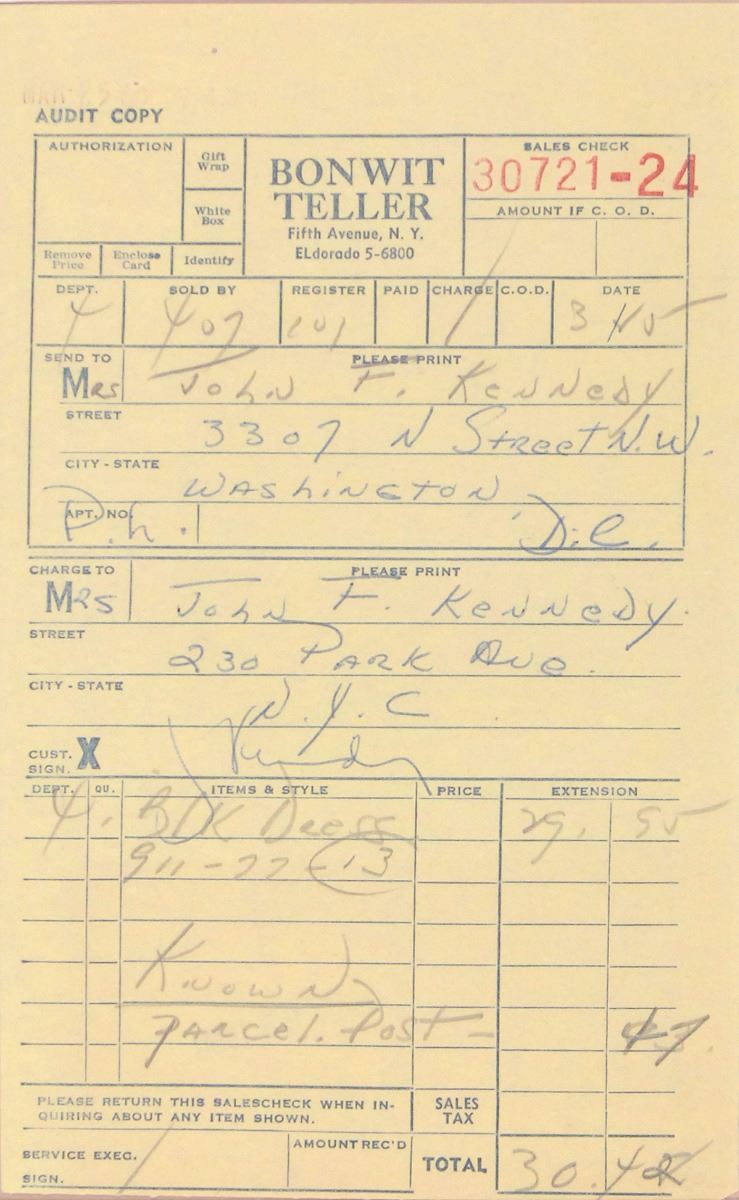 AUDIT COPY
AUTHORIZATION
Gift Wrap
White Box
Remove Price
Enclose Card
Identify
BONWIT
TELLER
Fifth Avenue, N. Y.
ELdorado 5-6800
SALES CHECK
30721-24
AMOUNT IF C. O. D.
DEPT. SOLD BY REGISTER PAID CHARGE C.O.D. DATE
4 407 101 / 3
SEND TO PLEASE PRINT
Mrs John F. Kennedy
STREET
3307 N Street N.W.
CITY - STATE
WASHINGTON
APT. NO.
P.h. D.C.
CHARGE TO PLEASE PRINT
MRS John F. Kennedy.
STREET
230 PARK Ave.
CITY - STATE
N.Y.C
CUST. SIGN. X Kennedy
DEPT. QU. ITEMS & STYLE PRICE EXTENSION
4. Blk Dress 29. 95
911-77-13
Known
Parcel. Post - 47
PLEASE RETURN THIS SALESCHECK WHEN IN-
QUIRING ABOUT ANY ITEM SHOWN.
SALES TAX
SERVICE EXEC.
SIGN.
AMOUNT REC'D
TOTAL 30.42